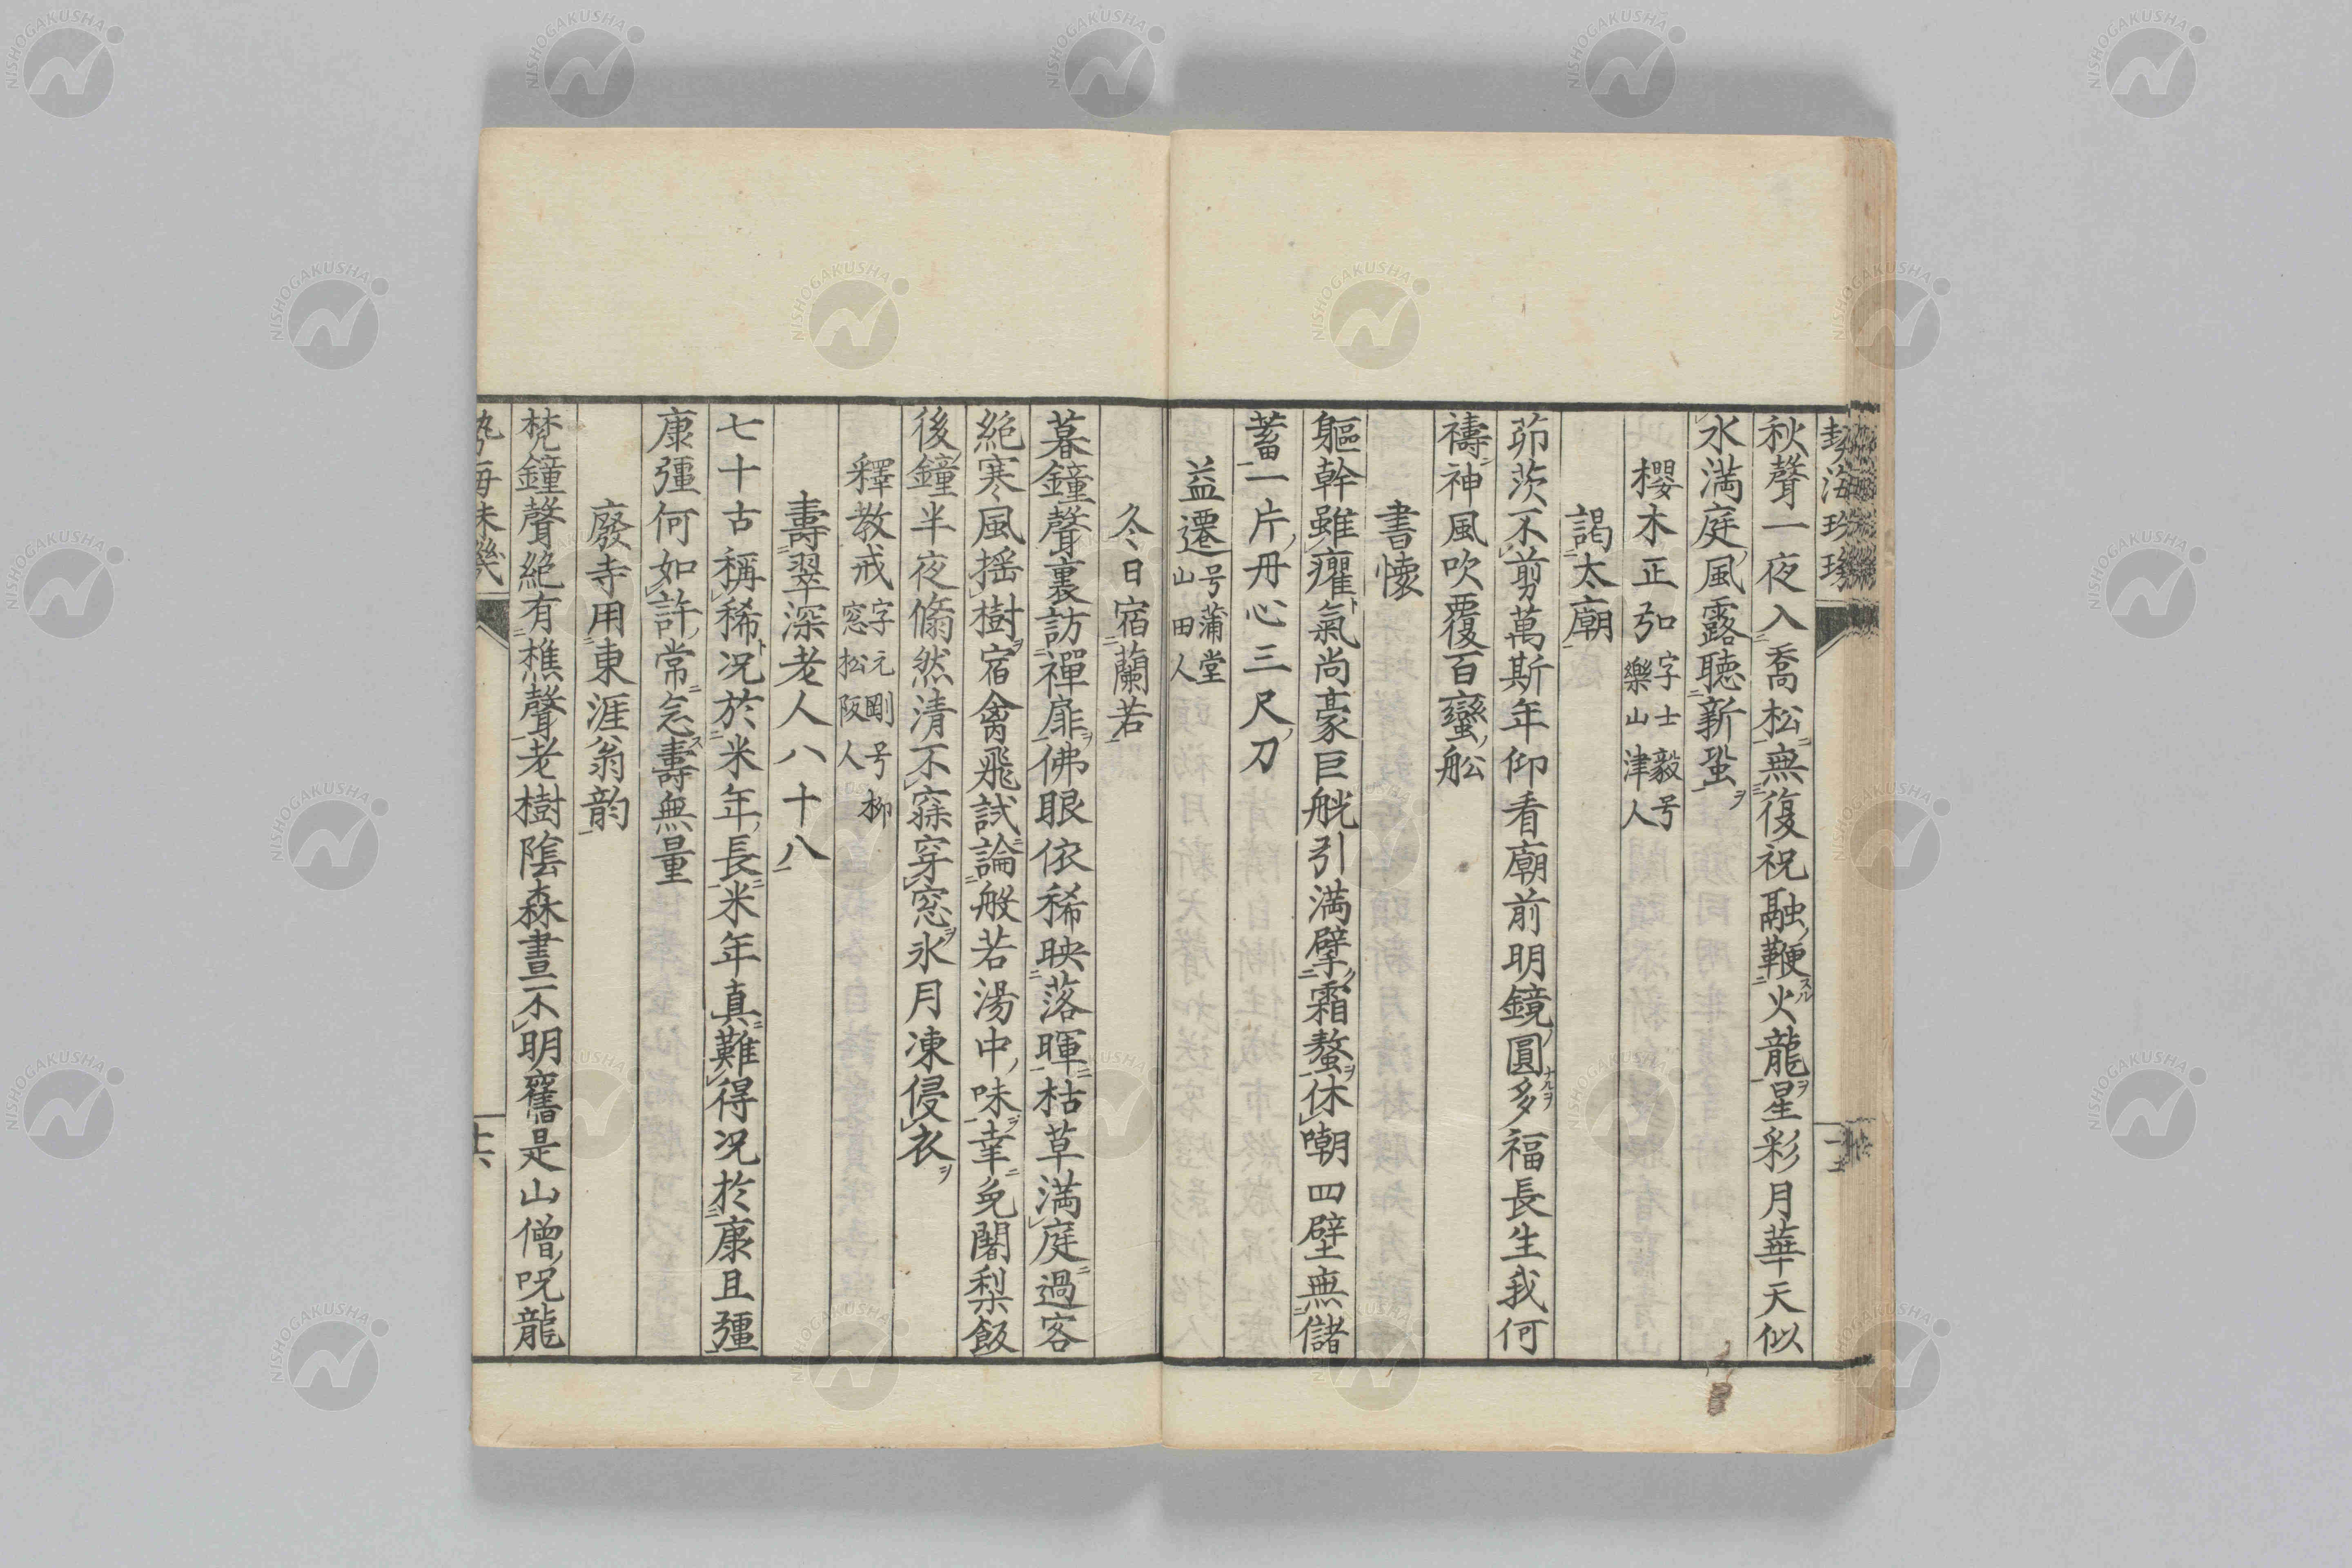 秋聲一夜入喬松無復祝融鞭火龍星彩月華天似
水滿庭風露聽新蛩
櫻木正弘 字士毅号樂山津人
謁太廟
茆茨不剪萬斯年仰看廟前明鏡圓多福長生我何
禱神風吹覆百蠻舩
書懷
軀幹雖癯氣尚豪巨觥引満擘霜螯休嘲四壁無儲
蓄一片丹心三尺刀
益遷 号蒲堂山田人
冬日宿蘭若
暮鐘聲裏訪禪扉佛眼依稀映落暉枯草満庭過客
絶寒風揺樹宿禽飛試論般若湯中味幸免闍梨飯
後鐘半夜翛然清不寐穿窓氷月凍侵衣
釋教戒 字元剛号柳窓松阪人
壽翠深老人八十八
七十古稱稀况於米年長米年真難得况於康且彊
康彊何如許常念壽無量
廢寺用東涯翁韵
梵鐘聲絶有樵聲老樹陰森晝不明窻是山僧呪龍
十六
NISHOGAKUSHA